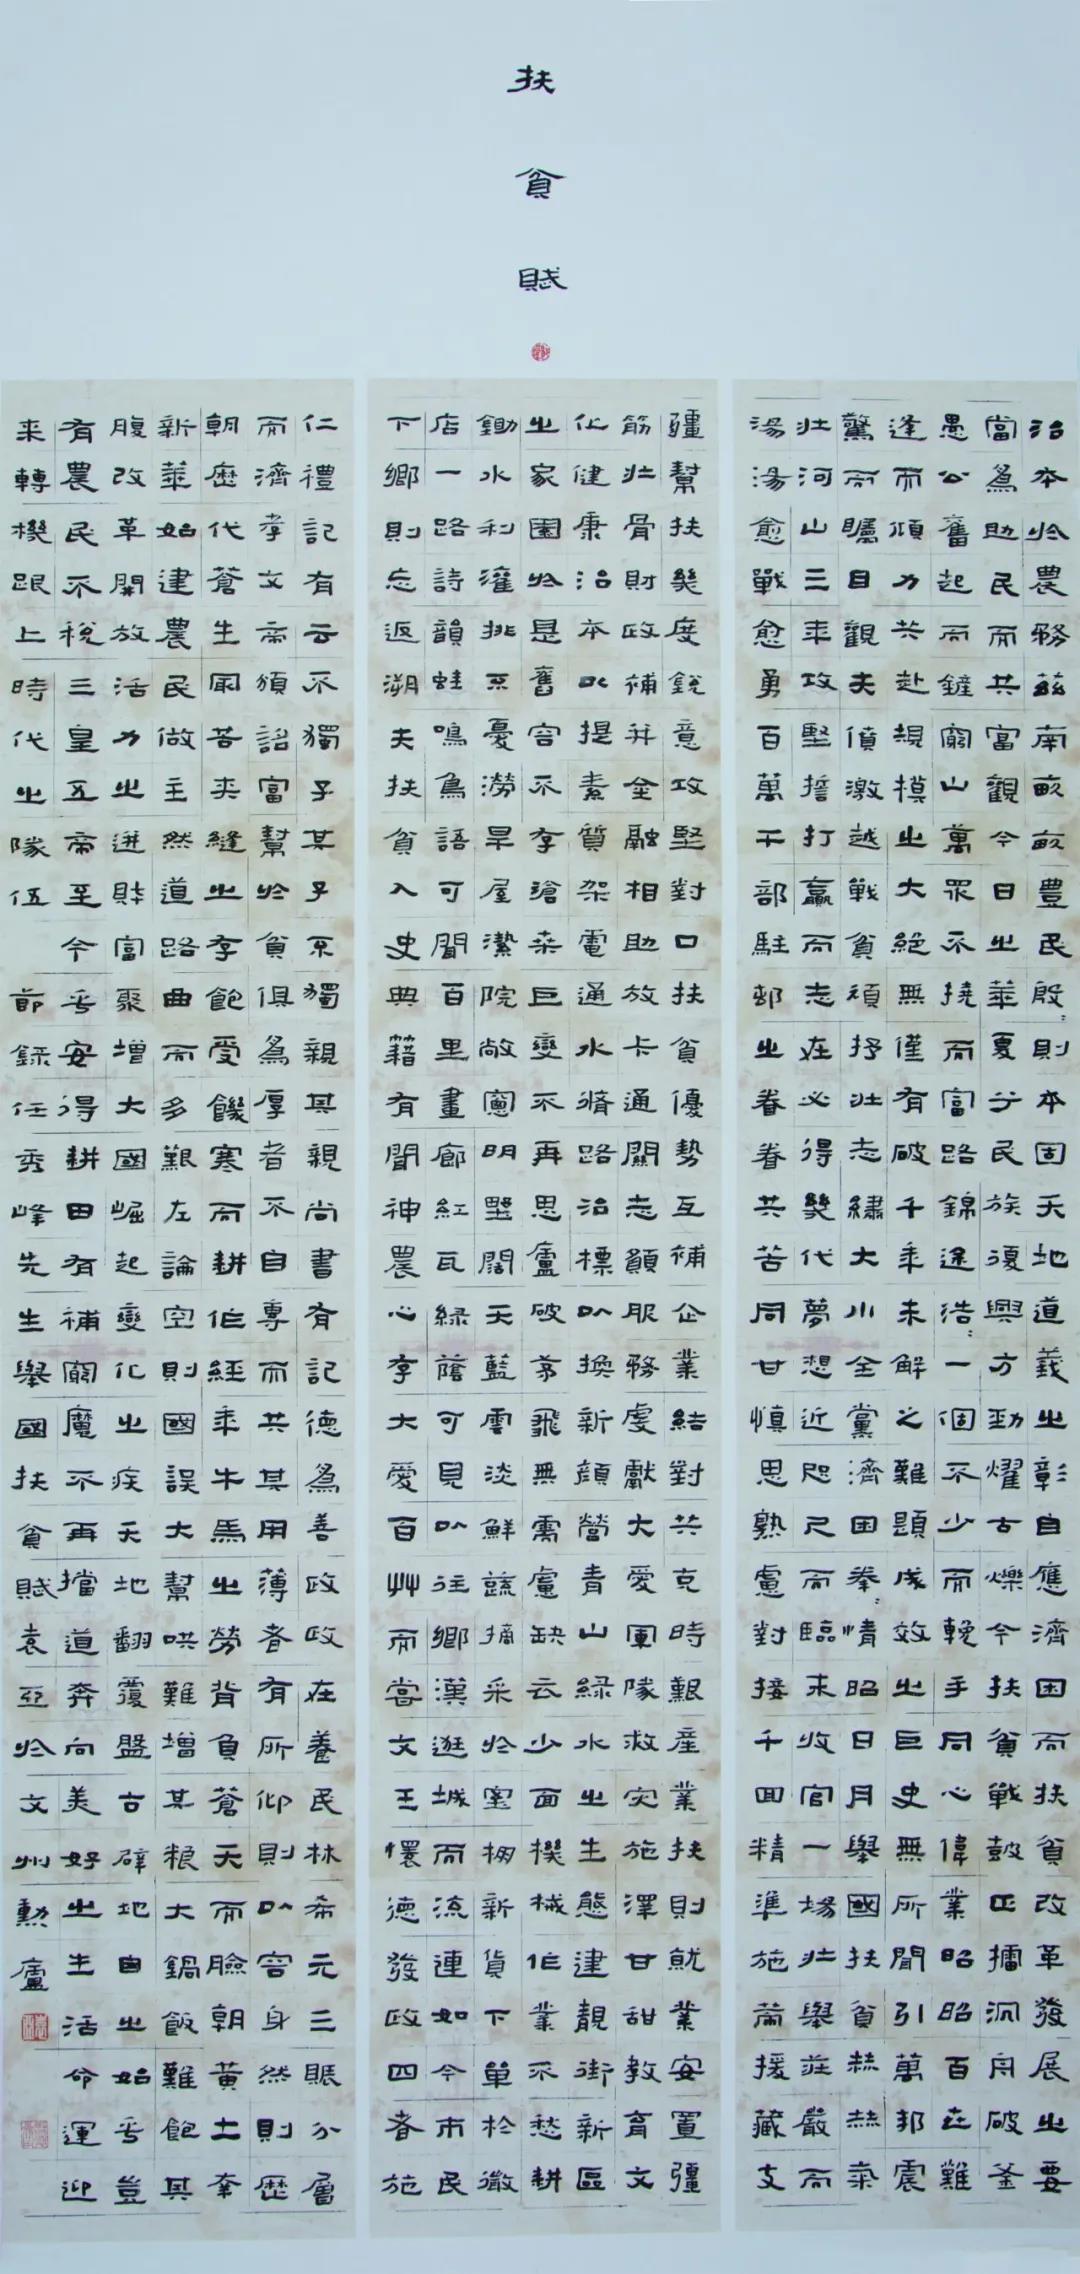 扶貧賦
治本於農務茲南畝畝豐民殷=則本固天地道義之彰自應濟困而扶貧改革發展之要
當為助民而共富觀今日之華夏兮民族復興方勁燿古爍今扶貧戰鼓正擂沉舟破釜
愚公奮起而鏟窮山萬眾不撓而富路錦途浩=一個不少而輓手同心偉業昭昭百世難
逢而傾力共赴規模之大絕無僅有破千年未解之難題成效之巨史無所聞引萬邦震
驚而矚目觀夫僨激越戰貧頑抒壯志繡大小全黨濟困拳=情昭日月舉國扶貧赫赫氣
壯河山三年攻堅誓打贏而志在必得幾代夢想近咫尺而臨未收官一場壯舉莊嚴而
湯湯愈戰愈勇百萬干部駐邨之眷眷共苦同甘慎思熟慮對接千回精準施策援藏支
疆幫扶幾度銳意攻堅對口扶貧優勢互補企業結對共克時艱產業扶則就業安置彊
筋壯骨財政補并金融相助放卡通關志願服務虔獻大愛軍隊救災施澤甘甜教育文
化健康治本以提素質架電通水脩路治標以換新顏營青山綠水之生態建靚街新區
之家園於是舊容不存滄桑巨變不再思廬破茅飛無需慮缺衣少面機械作業不愁耕
鋤水利灌排不憂澇旱屋潔院敞窗明墅闊天藍雲淡鮮蔬摘采於室棚新貨下單於微
店一路詩韻蛙鳴鳥語可聞百里畫廊紅瓦綠蔭可見以往鄉漢逛城而流連如今市民
下鄉則忘返溯夫扶貧入史典籍有聞神農心存大愛百艸而嘗文王懷德發政四者施
仁禮記有云不獨子其子不獨親其親尚書有記德為善政政在養民林希元三賑分層
而濟孝文帝頒詔富幫於貧俱為厚者不自專而共其用薄者有所仰則以容身然則歷
朝歷代蒼生罔苦夾縫之存飽受饑寒而耕作經年牛馬之勞背負蒼天而臉朝黃土奉
新華始建農民做主然道路曲而多艱左論空則國誤大幫哄難增其糧大鍋飯難飽其
腹改革開放活力之迸財富聚增大國崛起變化之疾天地翻覆盤古辟地自之始兮豈
有農民不稅三皇五帝至今兮安得耕田有補窮魔不再擋道奔向美好之生活命運迎
来轉機跟上時代之隊伍 節錄任秀峰先生舉國扶貧賦袁亞於文州勳廬